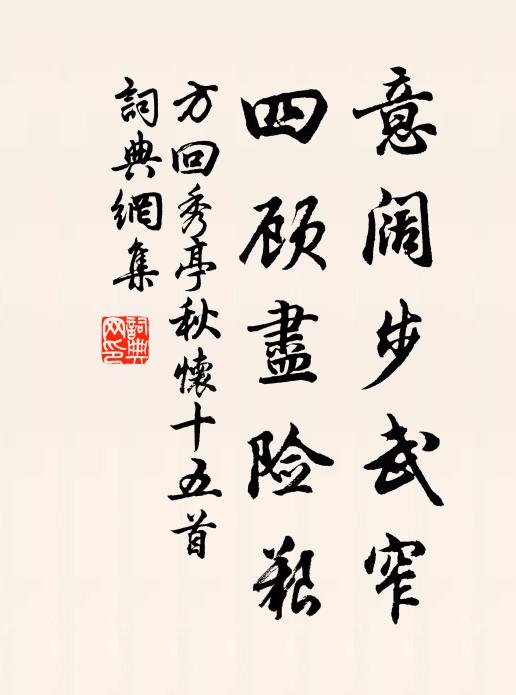 意阔步武窄
四顾盡险艱
方回秀亭秋懷十五首
詞典網集
詞典网印